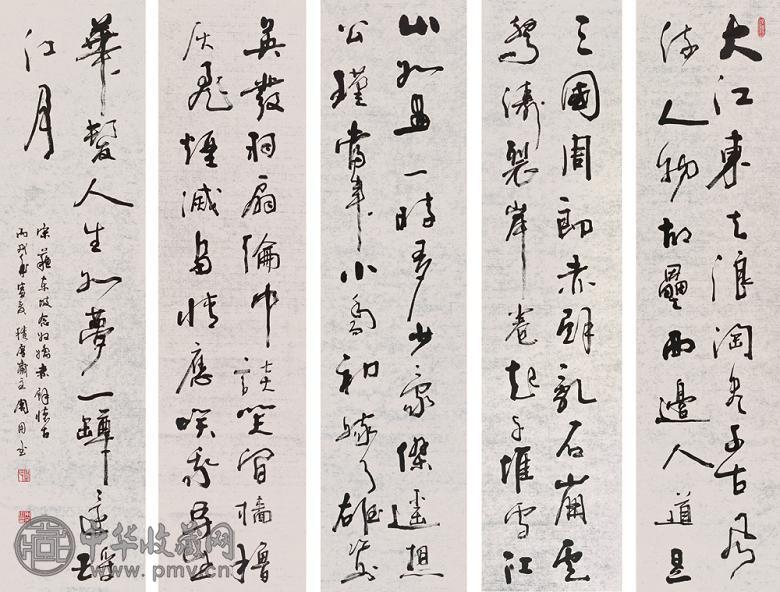 大江東去浪淘盡千古風
流人物故壘西邊人道是
三國周郎赤壁亂石崩雲
驚濤裂岸卷起千堆雪江
山如畫一時多少豪傑遙想
公瑾當年小喬初嫁了雄姿
英發羽扇綸巾談笑間檣櫓
灰飛煙滅多情應笑我早生
華髮人生如夢一罇還酹
江月
宋蘇東坡念奴嬌赤壁懷古
丙戌年齋主周同書
中华收藏网
www.pmv.cn